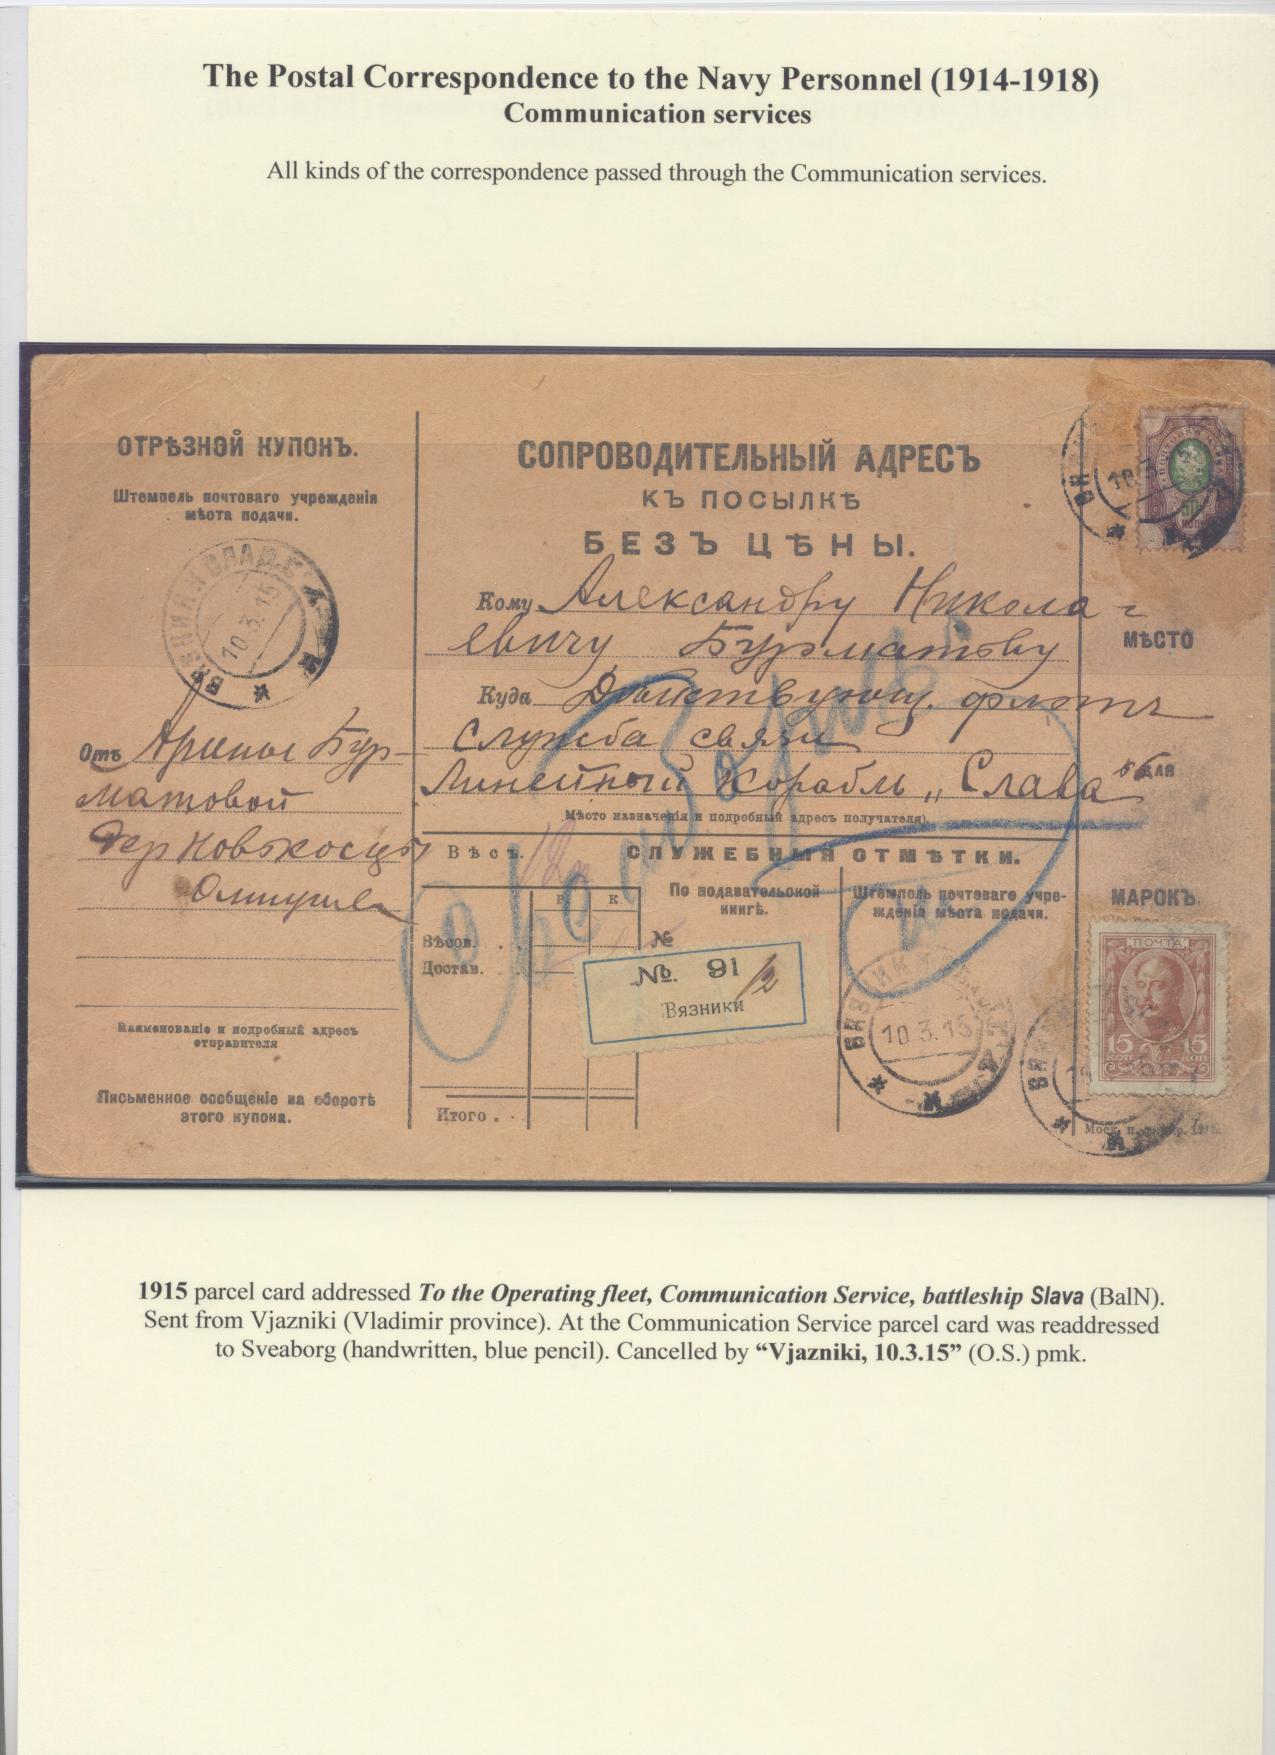 The Postal Correspondence to the Navy Personnel (1914-1918)
Communication services
All kinds of the correspondence passed through the Communication services.
ОТРѢЗНОЙ КУПОНЪ.
Штемпель почтоваго учрежденія
мѣста подачи.
10.3.15
Отъ Арины Бур-
матовой
Наименованіе и подробный адресъ
отправителя
Письменное сообщеніе на оборотѣ
этого купона.
СОПРОВОДИТЕЛЬНЫЙ АДРЕСЪ
КЪ ПОСЫЛКѢ
БЕЗЪ ЦѢНЫ.
Кому Александру Никола-
евичу Бурматову
Куда Дѣйствующ. флотъ
Служба связи
Линейный корабль „Слава"
Мѣсто назначенія и подробный адресъ получателя).
Вѣсъ.
СЛУЖЕБНЫЯ ОТМѢТКИ.
Р. К.
Вѣсов. . .
Достав. . .
Итого . .
По подавательской
книгѣ.
№
№. 91/2
Вязники
Штемпель почтоваго учре-
жденія мѣста подачи.
10.3.15
МѢСТО
для
МАРОКЪ.
50
КОП
ПОЧТА
15 15
КОП КОП
1915 parcel card addressed To the Operating fleet, Communication Service, battleship Slava (BalN).
Sent from Vjazniki (Vladimir province). At the Communication Service parcel card was readdressed
to Sveaborg (handwritten, blue pencil). Cancelled by “Vjazniki, 10.3.15” (O.S.) pmk.